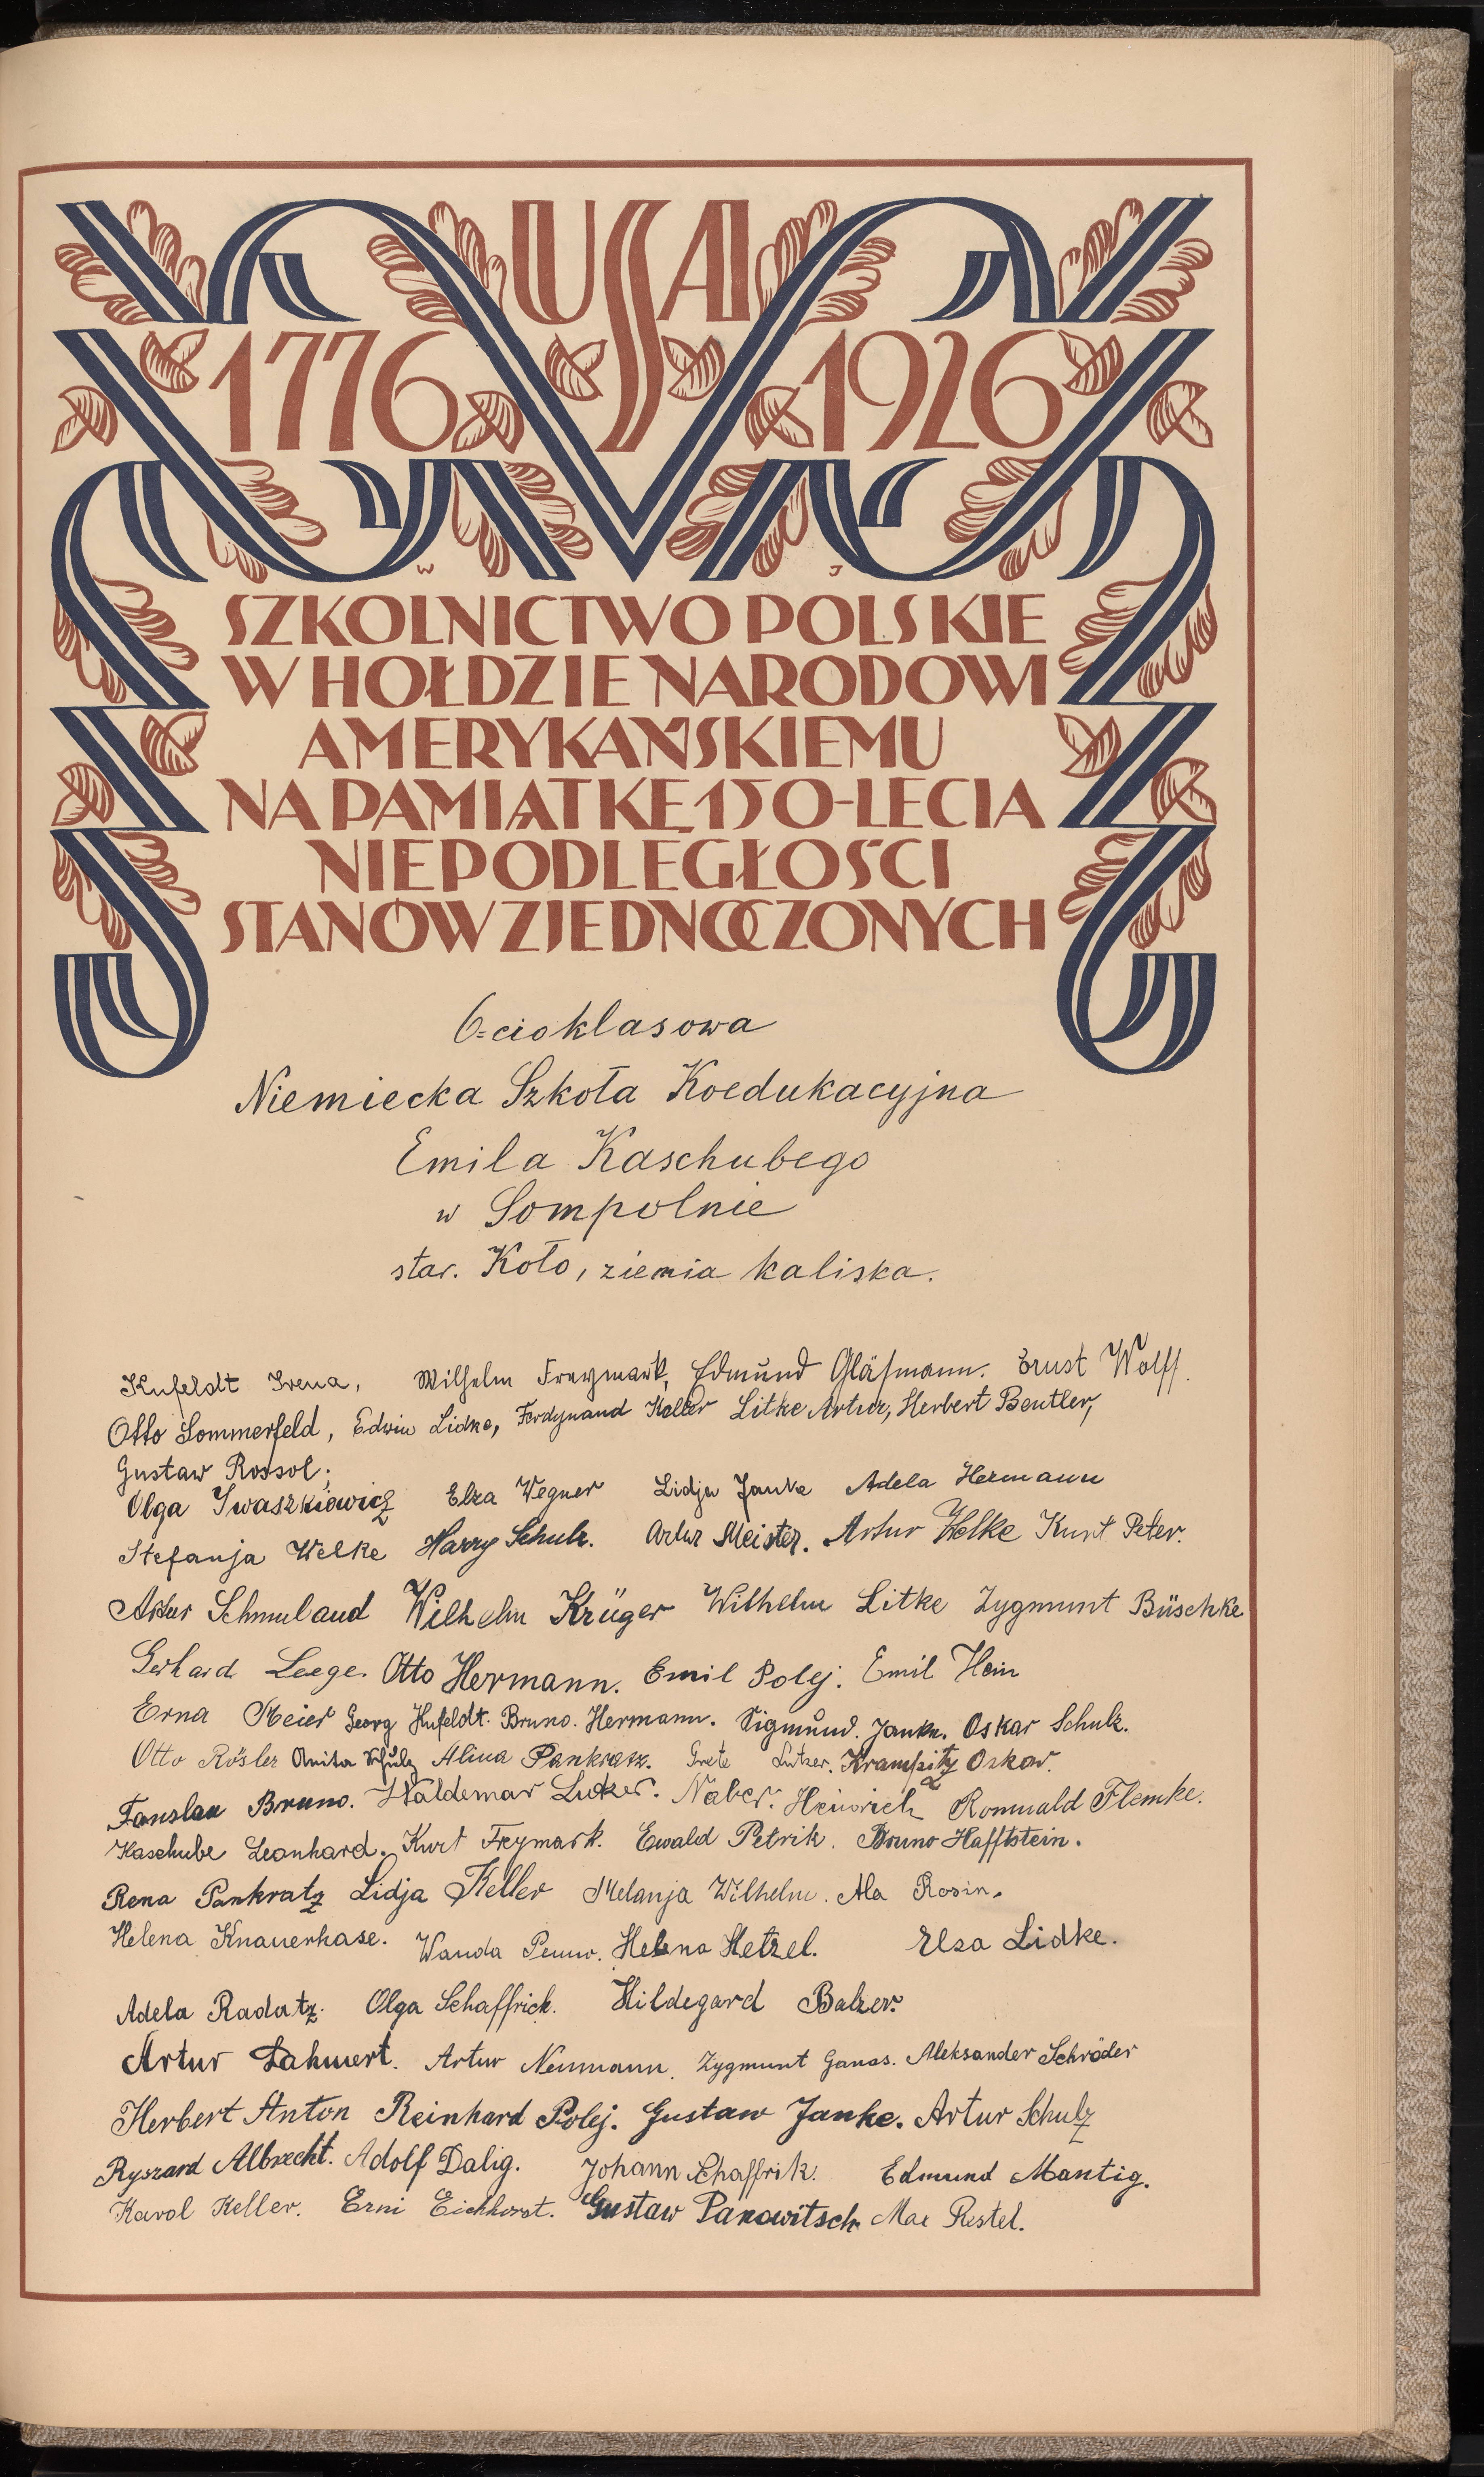 USA
1776 1926
W J
SZKOLNICTWO POLSKIE
W HOŁDZIE NARODOWI
AMERYKAŃSKIEMU
NA PAMIĄTKĘ 150-LECIA
NIEPODLEGŁOŚCI
STANÓW ZJEDNOCZONYCH
6=cioklasowa
Niemiecka Szkoła Koedukacyjna
Emila Kaschubego
w Sompolnie
star. Koło, ziemia kaliska.
Kufeldt Irena, Wilhelm Freymark, Edmund Gläsmann. Ernst Wolff.
Otto Sommerfeld, Edwin Lidke, Ferdynand Keller Litke Artur, Herbert Beutler,
Gustaw Rossol;
Olga Iwaszkiewicz Elza Wegner Lidja Janke Adela Hermann
Stefanja Welke Harry Schulz. Artur Meister. Artur Welke Kurt Peter.
Artur Schmuland Wilhelm Krüger Wilhelm Litke Zygmunt Büschke
Gerhard Leege. Otto Hermann. Emil Polej. Emil Hein
Erna Meier Georg Kufeldt. Bruno. Hermann. Sigmund. Janke. Oskar Schulz.
Otto Rösler Anita Schulz Alina Pankratz. Grete Lutzer. Krampitz Oskar.
Fanslau Bruno. Waldemar Lutzer. Naber. Heinrich Romuald Flemke.
Kaschube Leonhard. Kurt Freymark. Ewald Petrik. Bruno Hafftstein.
Rena Pankratz Lidja Keller Melanja Wilhelm. Ala Rosin.
Helena Knauerhase. Wanda Penno. Helena Hetzel. Elsa Lidke.
Adela Radatz. Olga Schaffrick. Hildegard Balzer.
Artur Neumann. Zygmunt Ganas. Aleksander Schröder
Herbert Anton Reinhard Polej. Gustaw Janke. Artur Schulz
Ryszard Albrecht. Adolf Dalig. Johann Schaffrik. Edmund Mantig.
Karol Keller. Erni Eichhorst. Gustaw Panowitsch Max Restel.